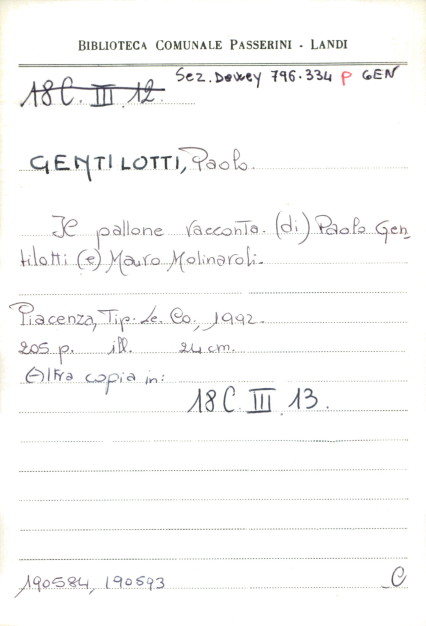 BIBLIOTECA COMUNALE PASSERINI - LANDI
Sez. Dewey 796.334 P GEN
18C. III. 12.
GENTILOTTI, Paolo.
Il pallone racconta. (di) Paolo Gen-
tilotti (e) Mauro Molinaroli.
Piacenza, Tip. Le. Co., 1992.
205 p. ill. 24 cm.
Altra copia in:
18C III 13.
190584, 190593 C